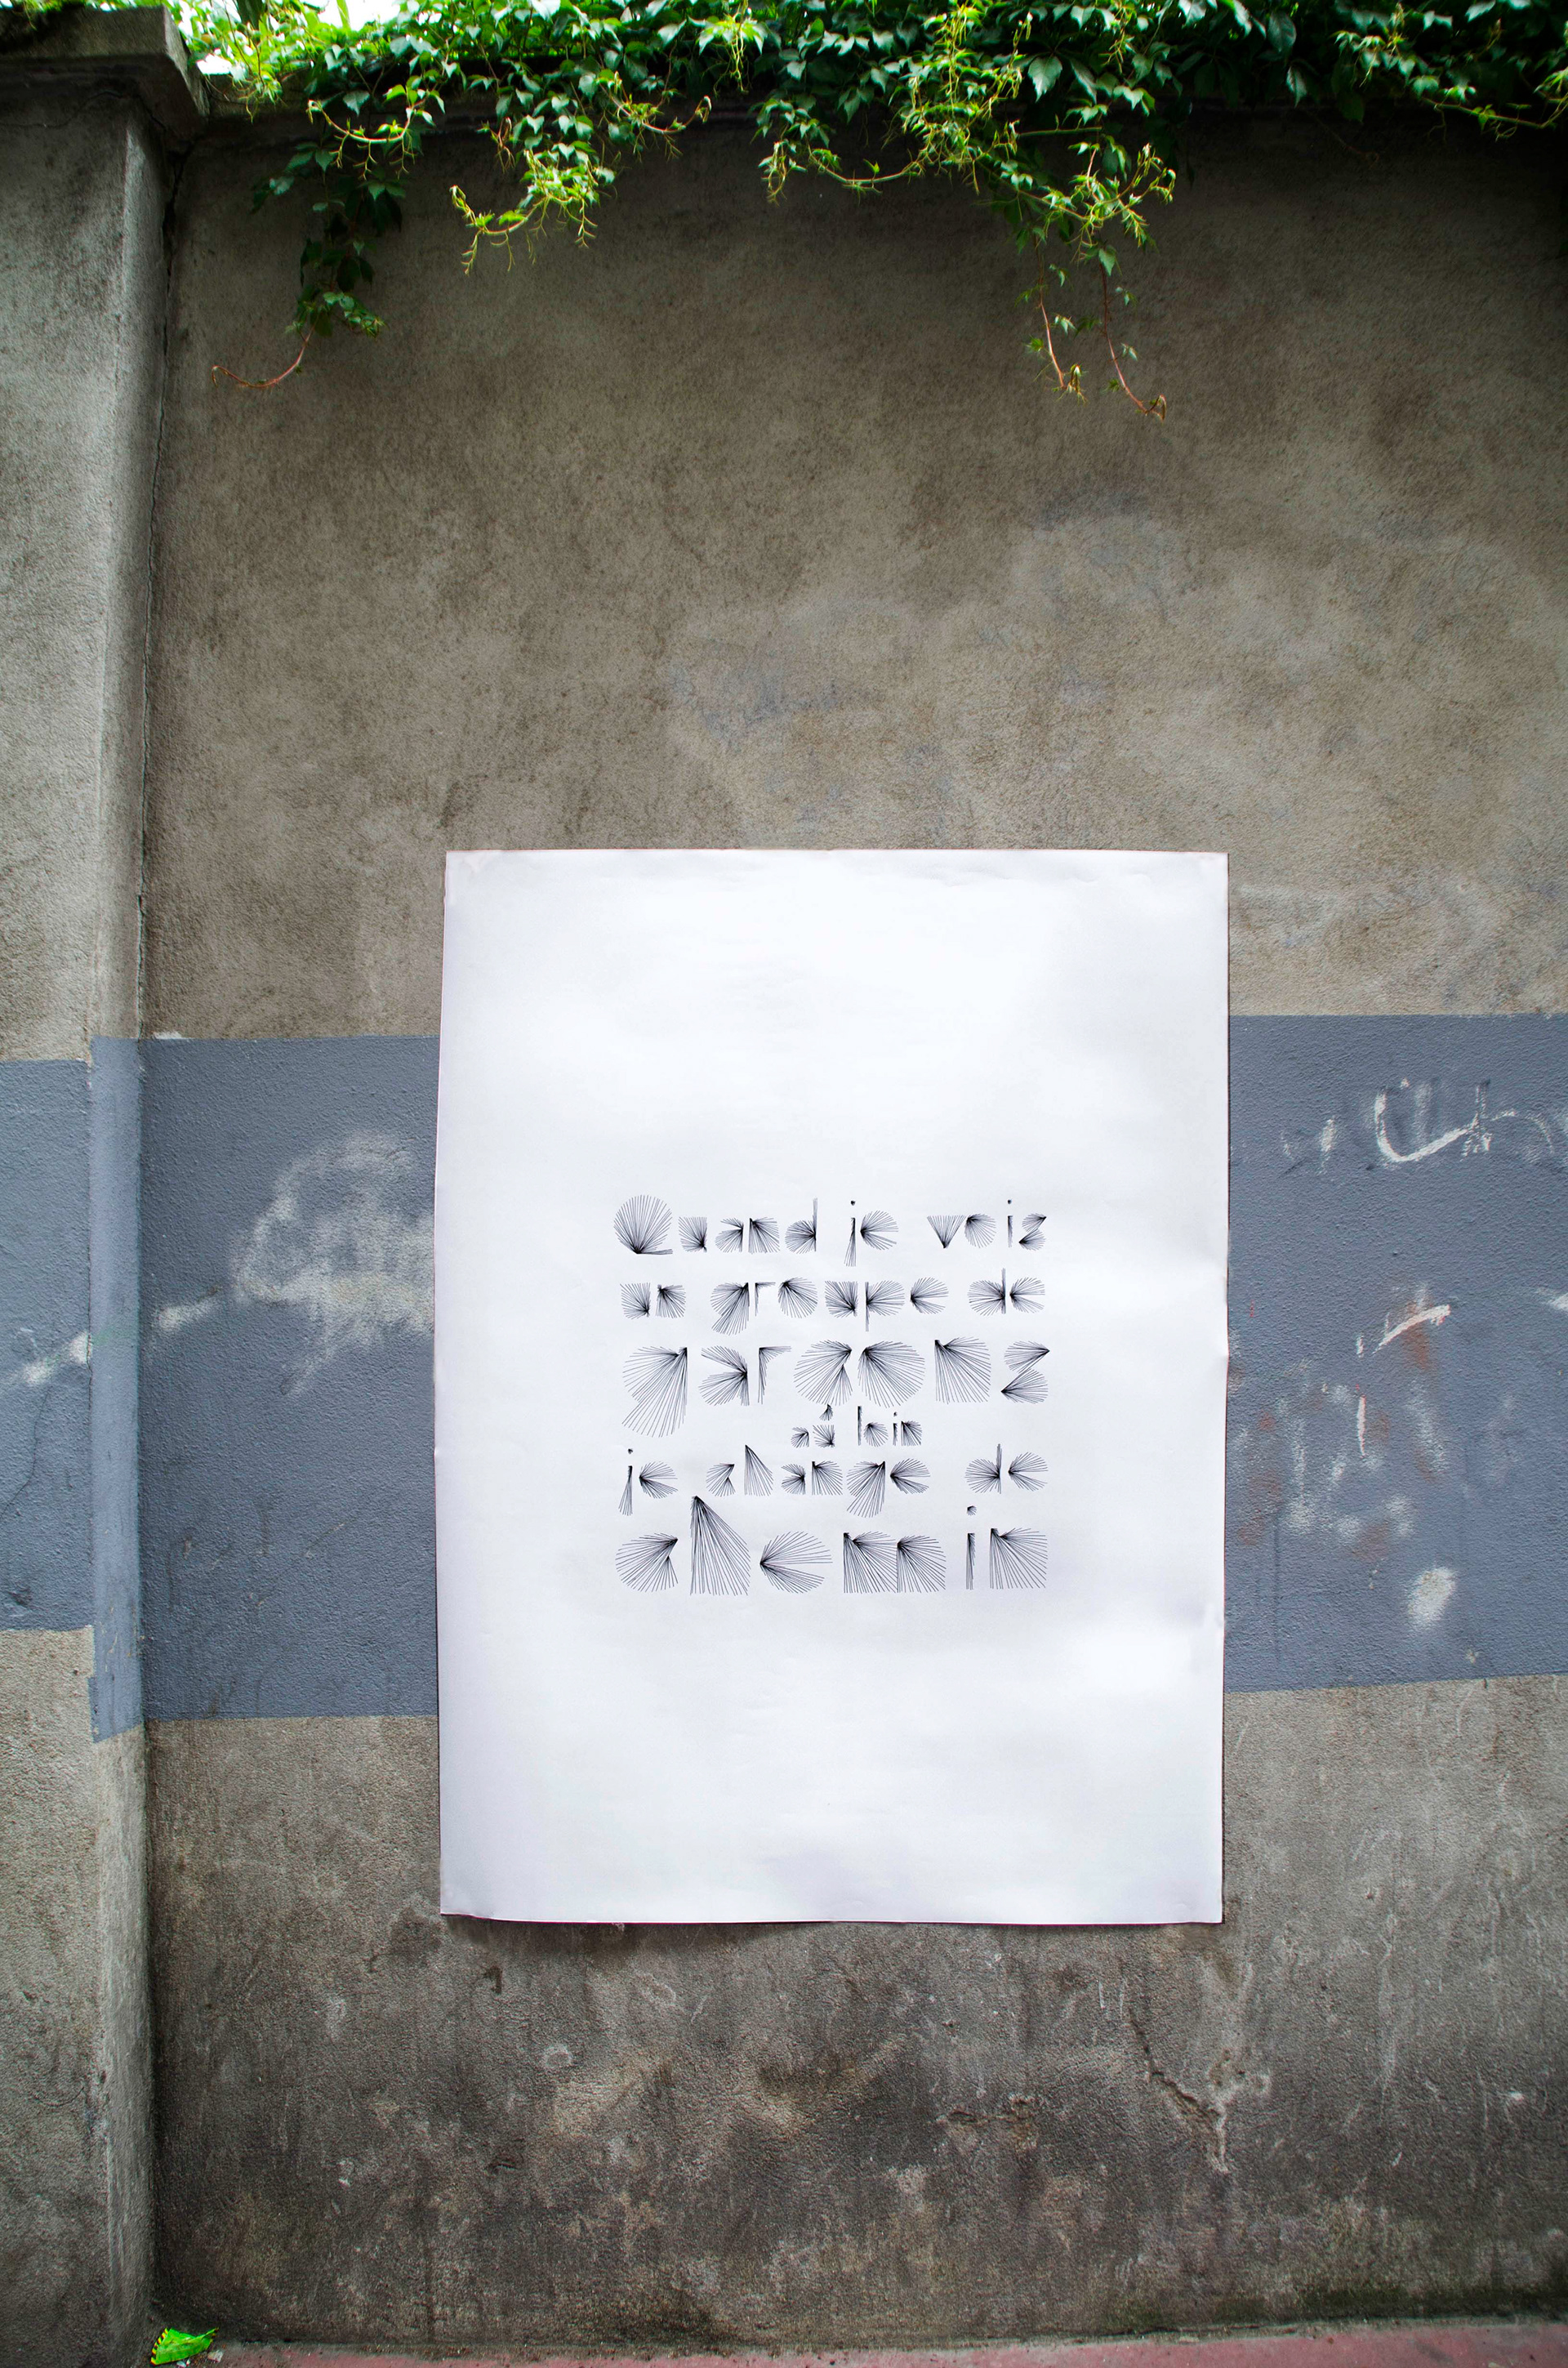 Quand je vois
un groupe de
garçons
au loin
je change de
chemin